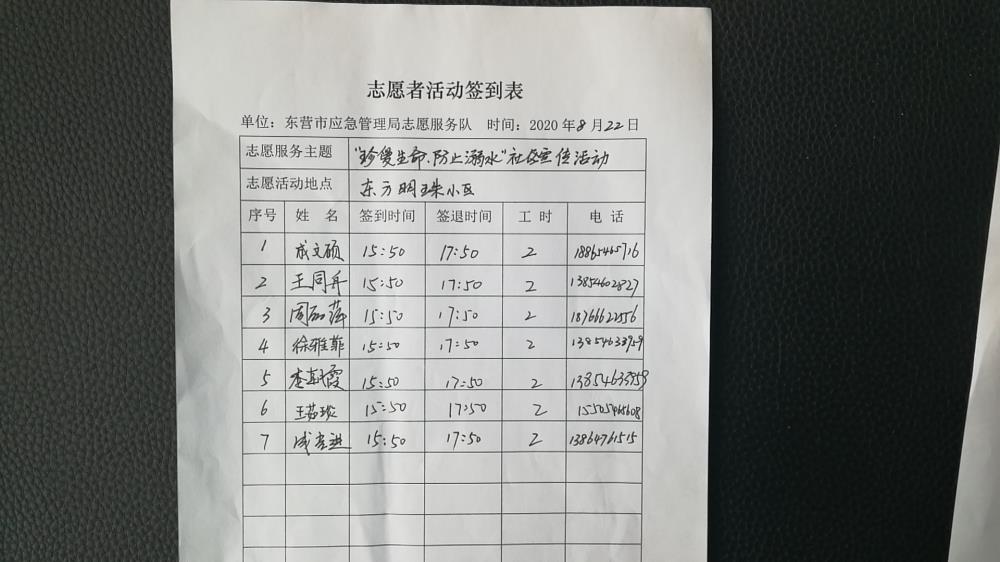 志愿者活动签到表
单位：东营市应急管理局志愿服务队 时间：2020年8月22日
志愿服务主题 "珍爱生命、防止溺水"社区宣传活动
志愿活动地点 东方明珠小区
序号 姓名 签到时间 签退时间 工时 电话
1 成文硕 15:50 17:50 2 18865465716
2 王同舟 15:50 17:50 2 13854602827
3 周 萍 15:50 17:50 2
4 徐雅菲 15:50 17:50 2 13854633959
5 李朝霞 15:50 17:50 2 13854633959
6 王 15:50 17:50 2 15505465608
7 成 进 15:50 17:50 2 13864761515